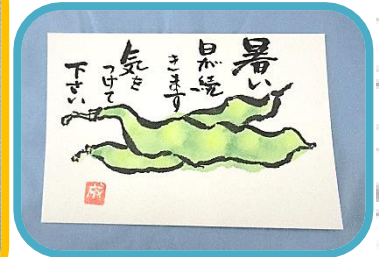 暑い
日が続
きます
気を
つけて
下さい